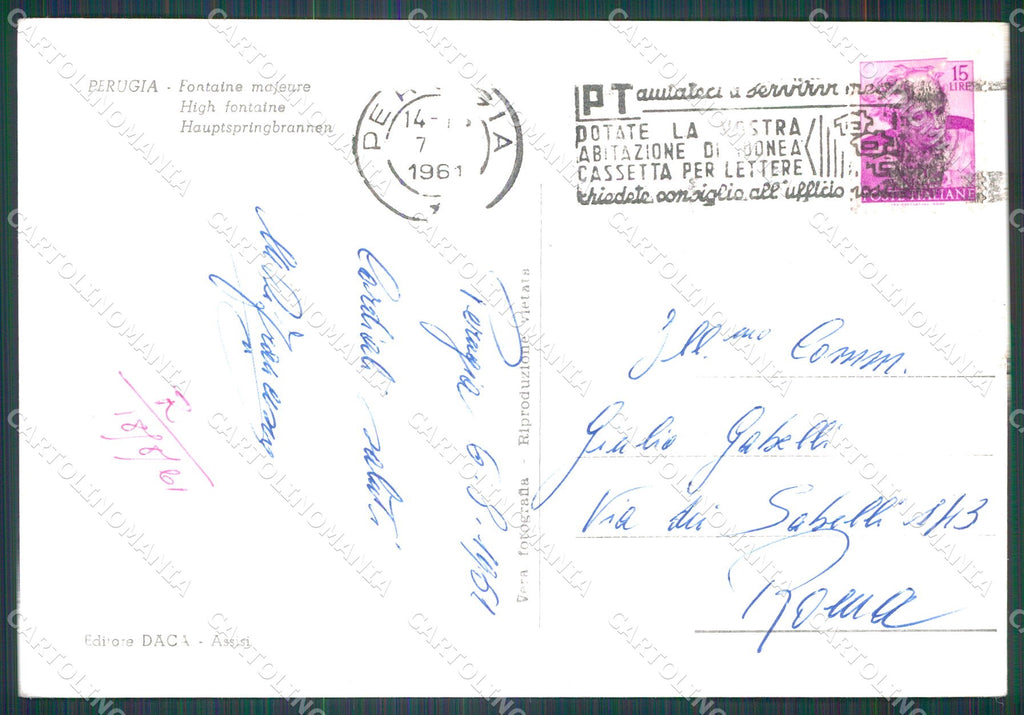 PERUGIA - Fontaine majeure
High fontaine
Hauptspringbrannen
14-
7
1961
PT aiutateci a servirvi
DOTATE LA VOSTRA
ABITAZIONE DI IDONEA
CASSETTA PER LETTERE
chiedete consiglio all'ufficio
15
LIRE
POSTE ITALIANE
Perugia 6.8.1961
Cordiali saluti.
18/8/61
Vera fotografia - Riproduzione vietata
Ill.mo Comm.
Giulio Gabelli
Via dei Sabelli
Roma
Editore DACA - Assisi
CARTOLINOMANIA